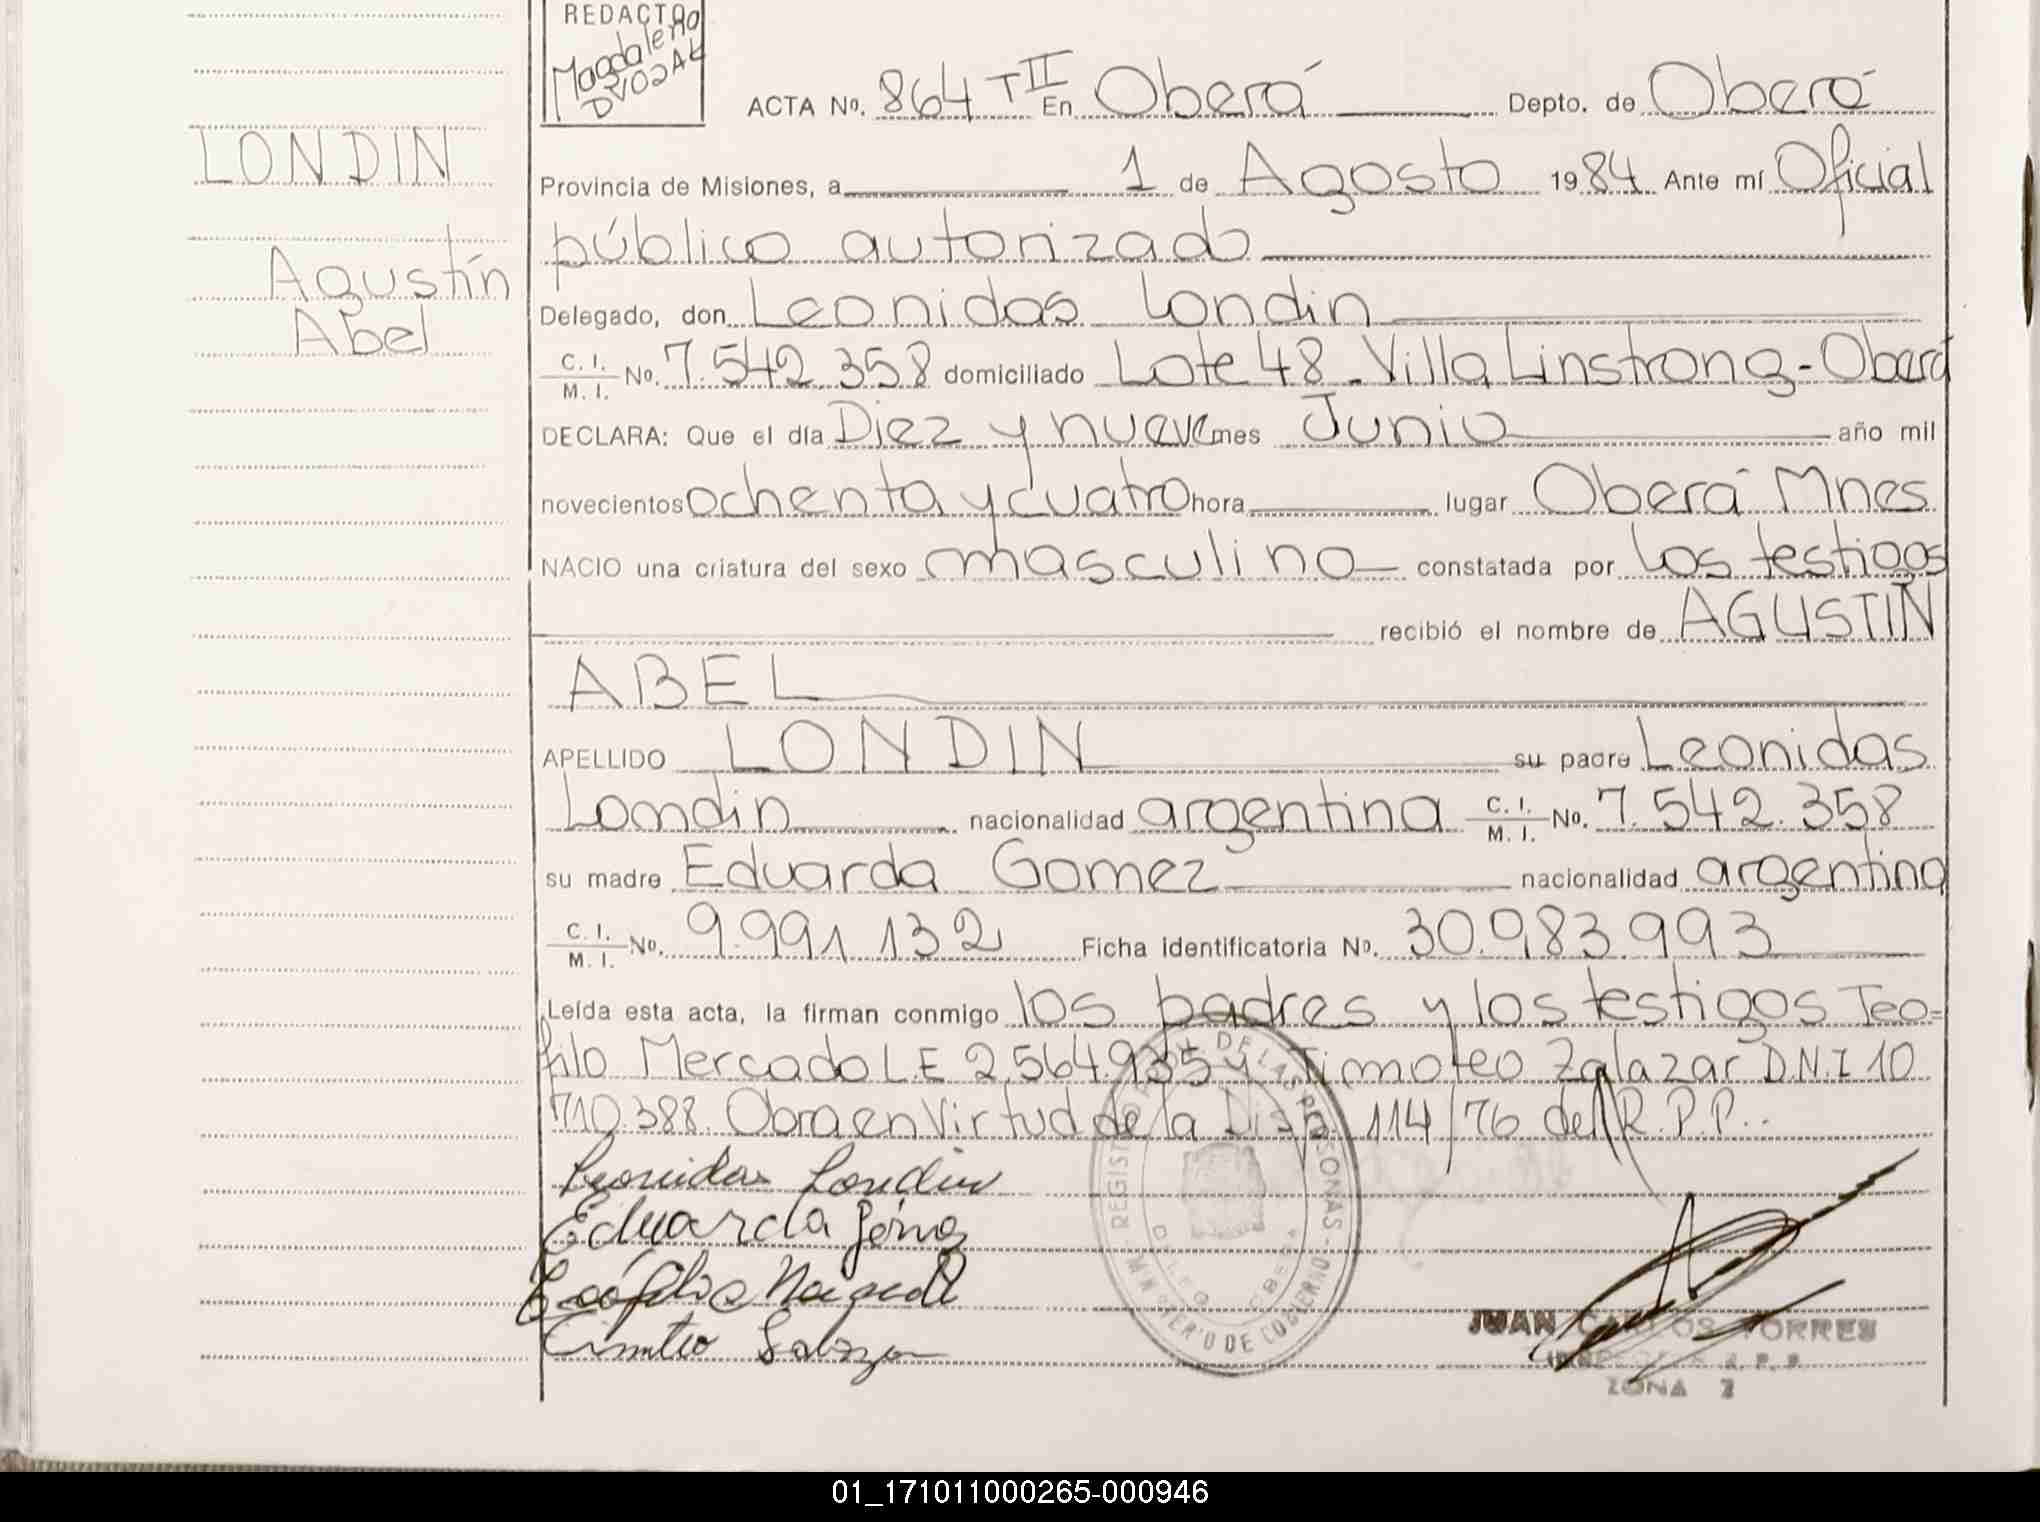 REDACTO
Magdaleno
ACTA No. 864 T II En Oberá Depto. de Oberá
LONDIN
Provincia de Misiones, a 1 de Agosto 1984 Ante mí Oficial
público autorizado
Agustín
Abel
Delegado, don Leonidas Londin
C. I. / M. I. No. 7.542.358 domiciliado Lote 48 - Villa Linstrong - Oberá
DECLARA: Que el día Diez y nueve mes Junio año mil
novecientos ochenta y cuatro hora lugar Oberá Mnes.
NACIO una criatura del sexo masculino constatada por los testigos
recibió el nombre de AGUSTIN
ABEL
APELLIDO LONDIN su padre Leonidas
Londin nacionalidad argentina C. I. / M. I. No. 7.542.358
su madre Eduarda Gomez nacionalidad argentina
C. I. / M. I. No. 9.991.132 Ficha identificatoria No. 30.983.993
Leída esta acta, la firman conmigo los padres y los testigos Teo=
filo Mercado L.E 2.564.935 y Timoteo Zalazar D.N.I 10
710.388. Obra en Virtud de la Disp. 114/76 del R.P.P..
Leonidas Londin
Eduarda Gómez
REGISTRO DE LAS PERSONAS - MINISTERIO DE GOBIERNO
JUAN CARLOS TORRES
ZONA 2
01_171011000265-000946